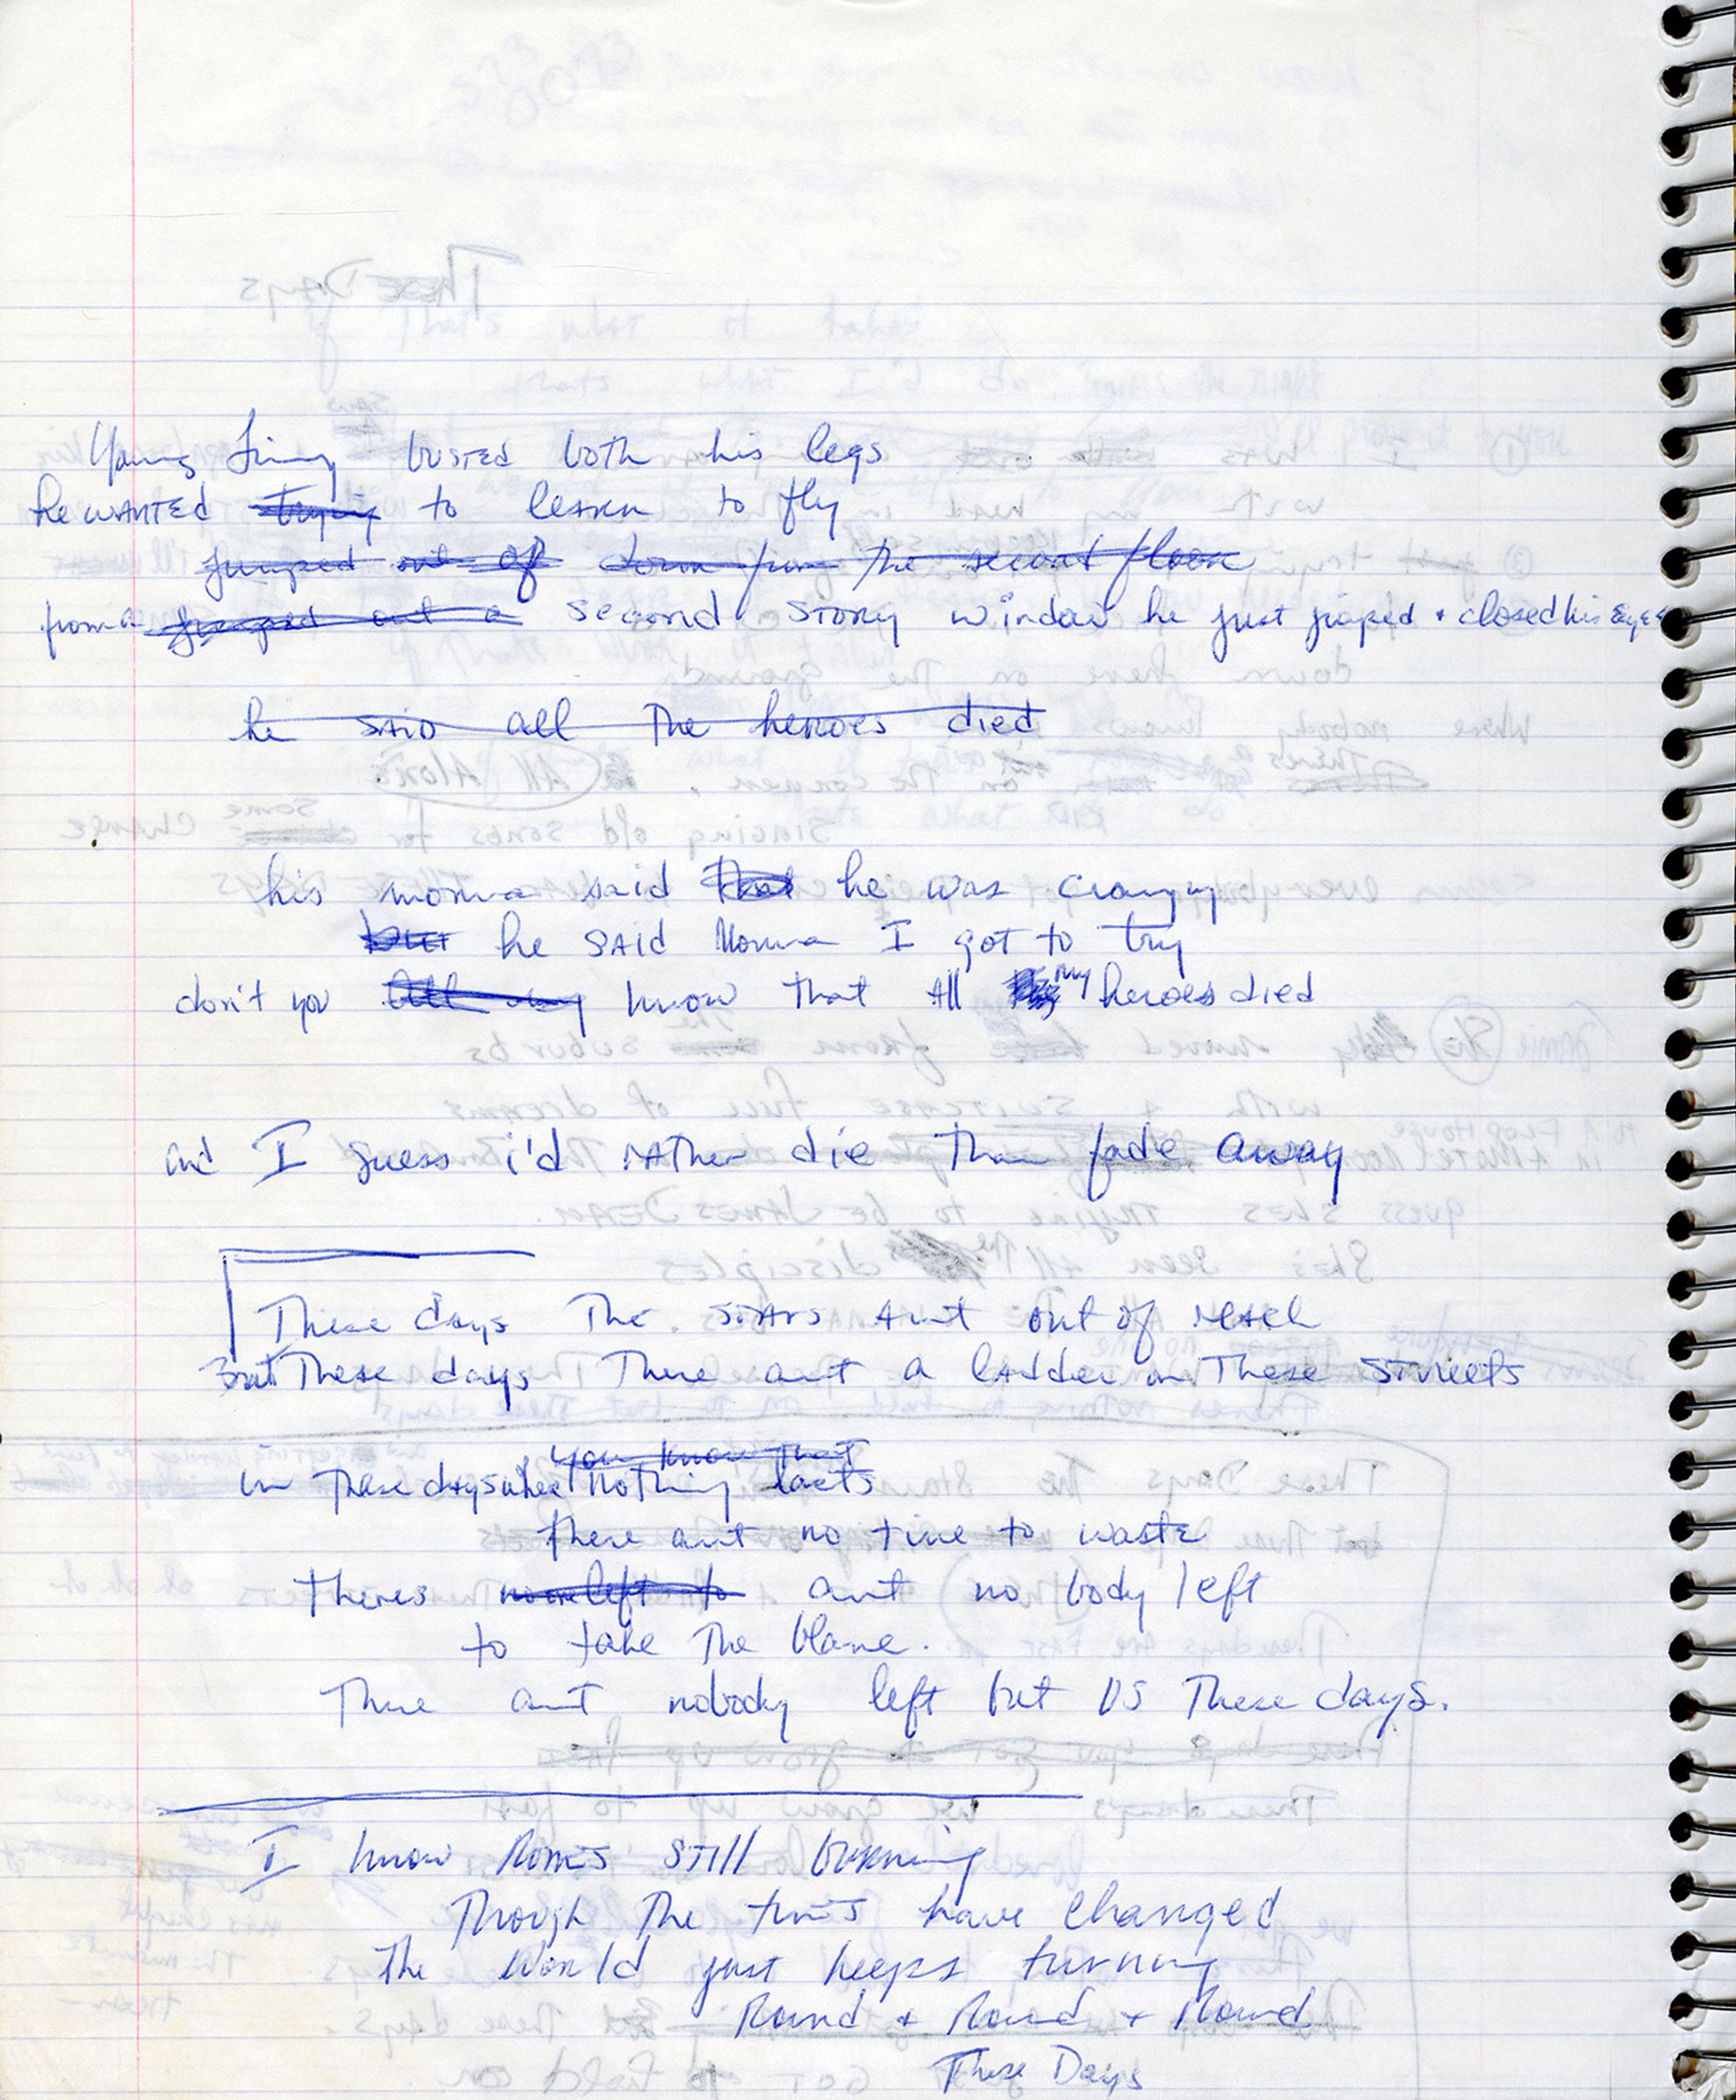 Young Jimmy busted both his legs
he wanted trying to learn to fly
jumped out of down from the second floor
from a jumped out a second story window he just jumped + closed his eyes
he said all the heroes died
his momma said that he was crazy
but he said Momma I got to try
don't you all my know that all my heroes died
and I guess i'd rather die than fade away
These days The stars aint out of reach
But These days There aint a ladder on These streets
you know that
in These days when nothing lasts
there aint no time to waste
theres left to aint no body left
to take The blame.
There aint nobody left but US These days.
I know Romes still burning
Though The times have changed
The world just keeps turning
Round + Round + Round
These Days